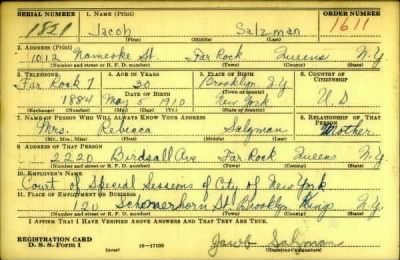 SERIAL NUMBER 1. NAME (Print) ORDER NUMBER
1821 Jacob Salzman 1611
(First) (Middle) (Last)
2. ADDRESS (Print)
1012 Nameoke St. Far Rock Queens N.Y.
(Number and street or R. F. D. number) (Town) (County) (State)
3. TELEPHONE 4. AGE IN YEARS 5. PLACE OF BIRTH 6. COUNTRY OF CITIZENSHIP
Far Rock 7 30 Brooklyn N.Y.
DATE OF BIRTH (Town or county)
1884 May 5 1910 New York U.S.
(Exchange) (Number) (Mo.) (Day) (Yr.) (State or country)
7. NAME OF PERSON WHO WILL ALWAYS KNOW YOUR ADDRESS 8. RELATIONSHIP OF THAT PERSON
Mrs. Rebecca Salzman Mother
(Mr., Mrs., Miss) (First) (Middle) (Last)
9. ADDRESS OF THAT PERSON
2220 Birdsall Ave Far Rock Queens N.Y.
(Number and street or R. F. D. number) (Town) (County) (State)
10. EMPLOYER'S NAME
Court of Special Sessions of City of New York
11. PLACE OF EMPLOYMENT OR BUSINESS
120 Schermerhorn St Brooklyn Kings N.Y.
(Number and street or R. F. D. number) (Town) (County) (State)
I AFFIRM THAT I HAVE VERIFIED ABOVE ANSWERS AND THAT THEY ARE TRUE.
REGISTRATION CARD
D. S. S. Form 1 16—17105 Jacob Salzman